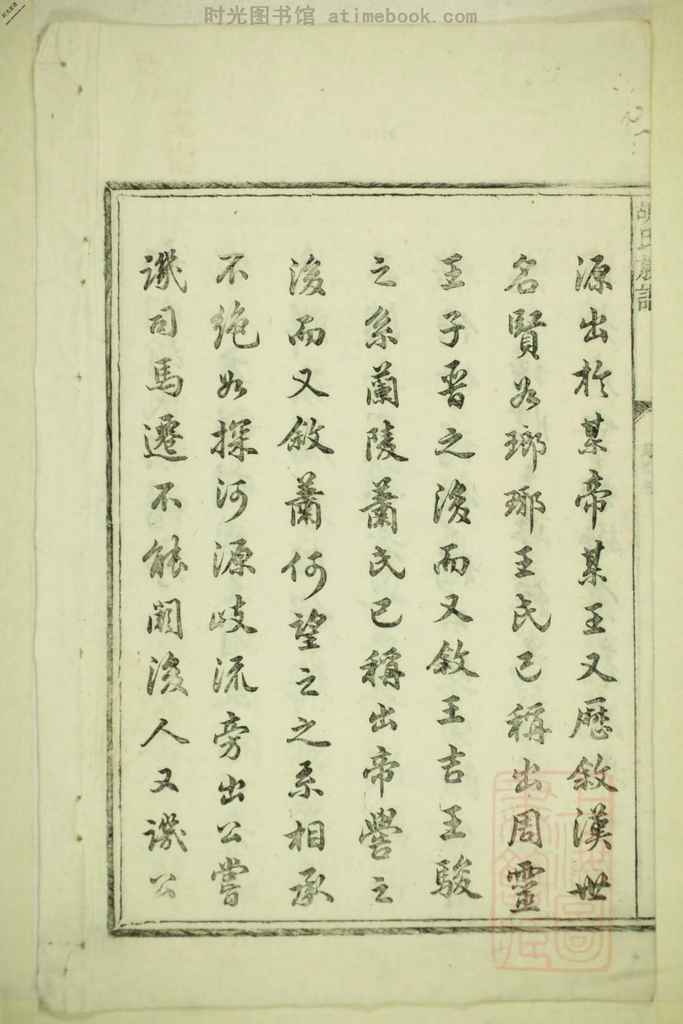 时光图书馆 atimebook.com
源出於某帝某王又歷敘漢世
名賢如瑯琊王氏已稱出周靈
王子晉之後而又敘王吉王駿
之系蘭陵蕭氏已稱出帝嚳之
後而又敘蕭何望之之系相承
不絶如探河源歧流旁出公嘗
譏司馬遷不能闕後人又譏公